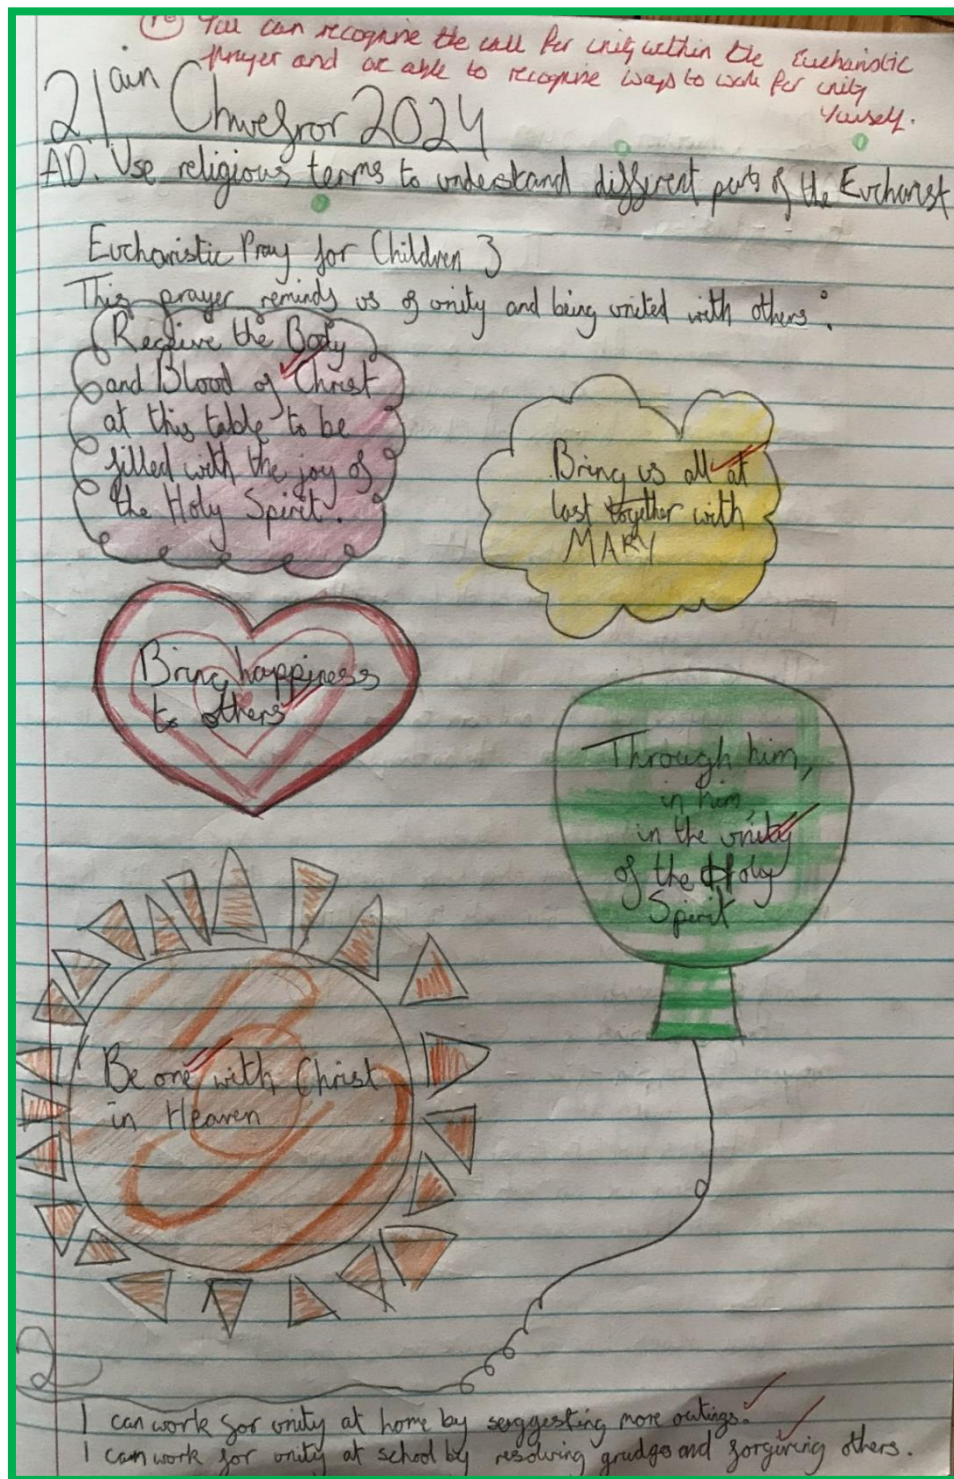 You can recognise the call for unity within the Eucharistic
prayer and are able to recognise ways to work for unity
yourself.
21ain Chwefror 2024
AD. Use religious terms to understand different parts of the Eucharist
Eucharistic Pray for Children 3
This prayer reminds us of unity and being united with others:
Receive the Body
and Blood of Christ
at this table to be
filled with the joy of
the Holy Spirit.
Bring us all at
last together with
MARY
Bring happiness
to others
Through him,
in him,
in the unity
of the Holy
Spirit
Be one with Christ
in Heaven
I can work for unity at home by seggesting more outings.
I can work for unity at school by resolving grudges and forgiving others.